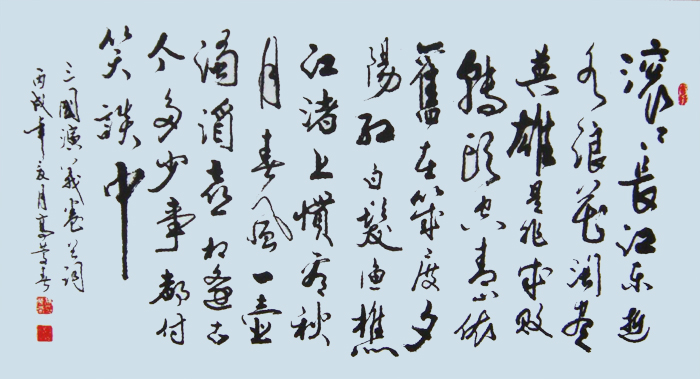 滚滚長江东逝
水浪花淘尽
英雄是非成败
轉頭空青山依
舊在幾度夕
陽红白髮渔樵
江渚上惯看秋
月春風一壶
濁酒喜相逢古
今多少事都付
笑談中
三國演義卷首词
丙戌年亥月高